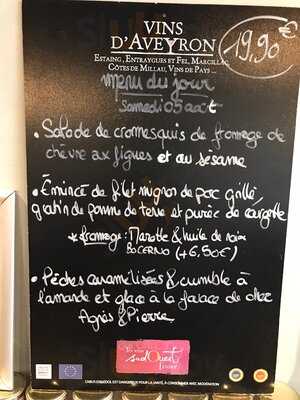 VINS
D'AVEYRON
ESTAING, ENTRAYGUES ET FEL, MARCILLAC,
CÔTES DE MILLAU, VINS DE PAYS ...
19,90 €
Menu du jour
Samedi 05 août
• Salade de cromesquis de fromage de
chèvre aux figues et au sésame
• Émincé de filet mignon de porc grillé,
gratin de pomme de terre et purée de courgette
* fromage : Marotte & huile de noix
BOCERNO (+6,50€)
• Pêches caramélisées & crumble à
l'amande et glace à la
Agnès & Pierre
sudOuest
L'ABUS D'ALCOOL EST DANGEREUX POUR LA SANTÉ, À CONSOMMER AVEC MODÉRATION